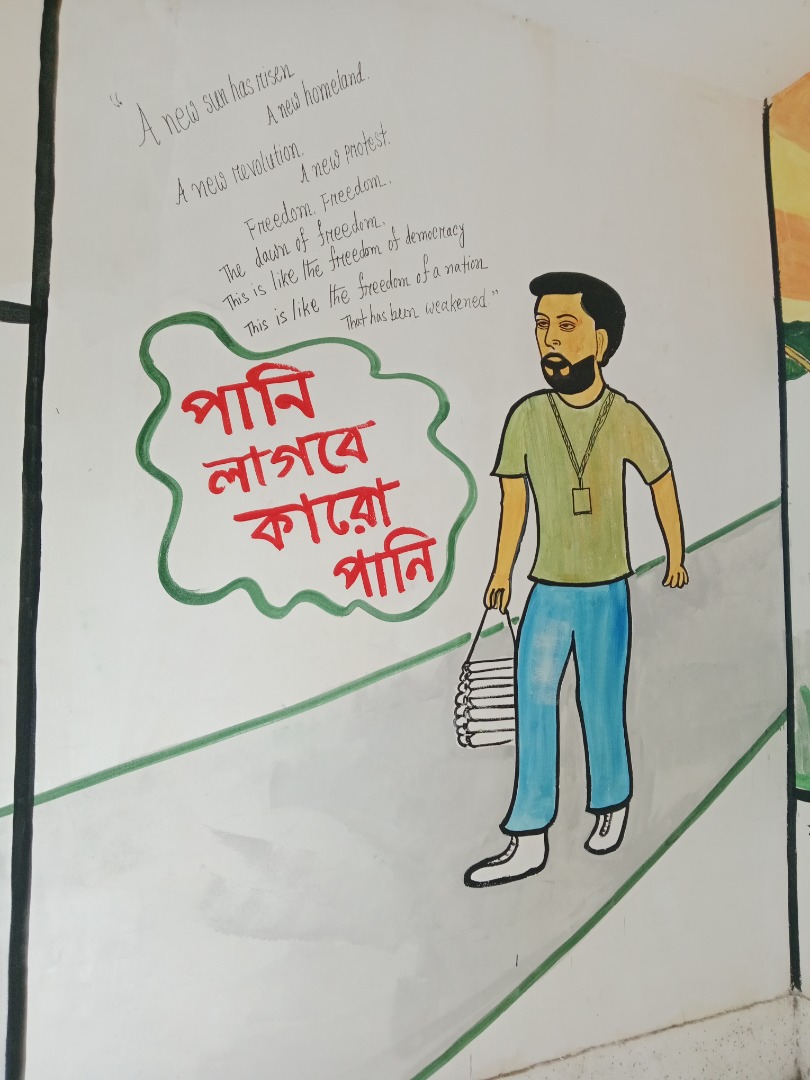 “A new sun has risen
A new homeland.
A new revolution.
A new protest.
Freedom. Freedom.
The dawn of freedom.
This is like the freedom of democracy
This is like the freedom of a nation
That has been weakened.”
পানি
লাগবে
কারো
পানি